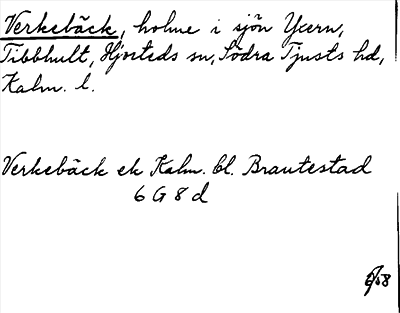 Verkebäck, holme i sjön Ycern,
Tibbhult, Hjorteds sn, Södra Tjusts hd,
Kalm. l.
Verkebäck ek Kalm. bl. Brantestad
6 G 8 d